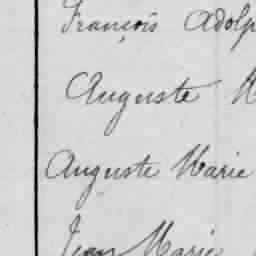 François Adolp
Auguste
Auguste Marie
Jean Marie